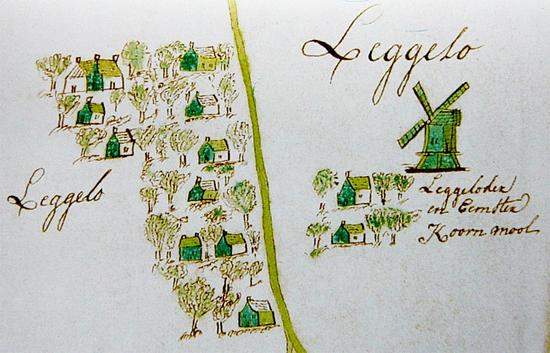 Leggelo
Leggelo
Leggeloder
en Eemster
Koorn mool